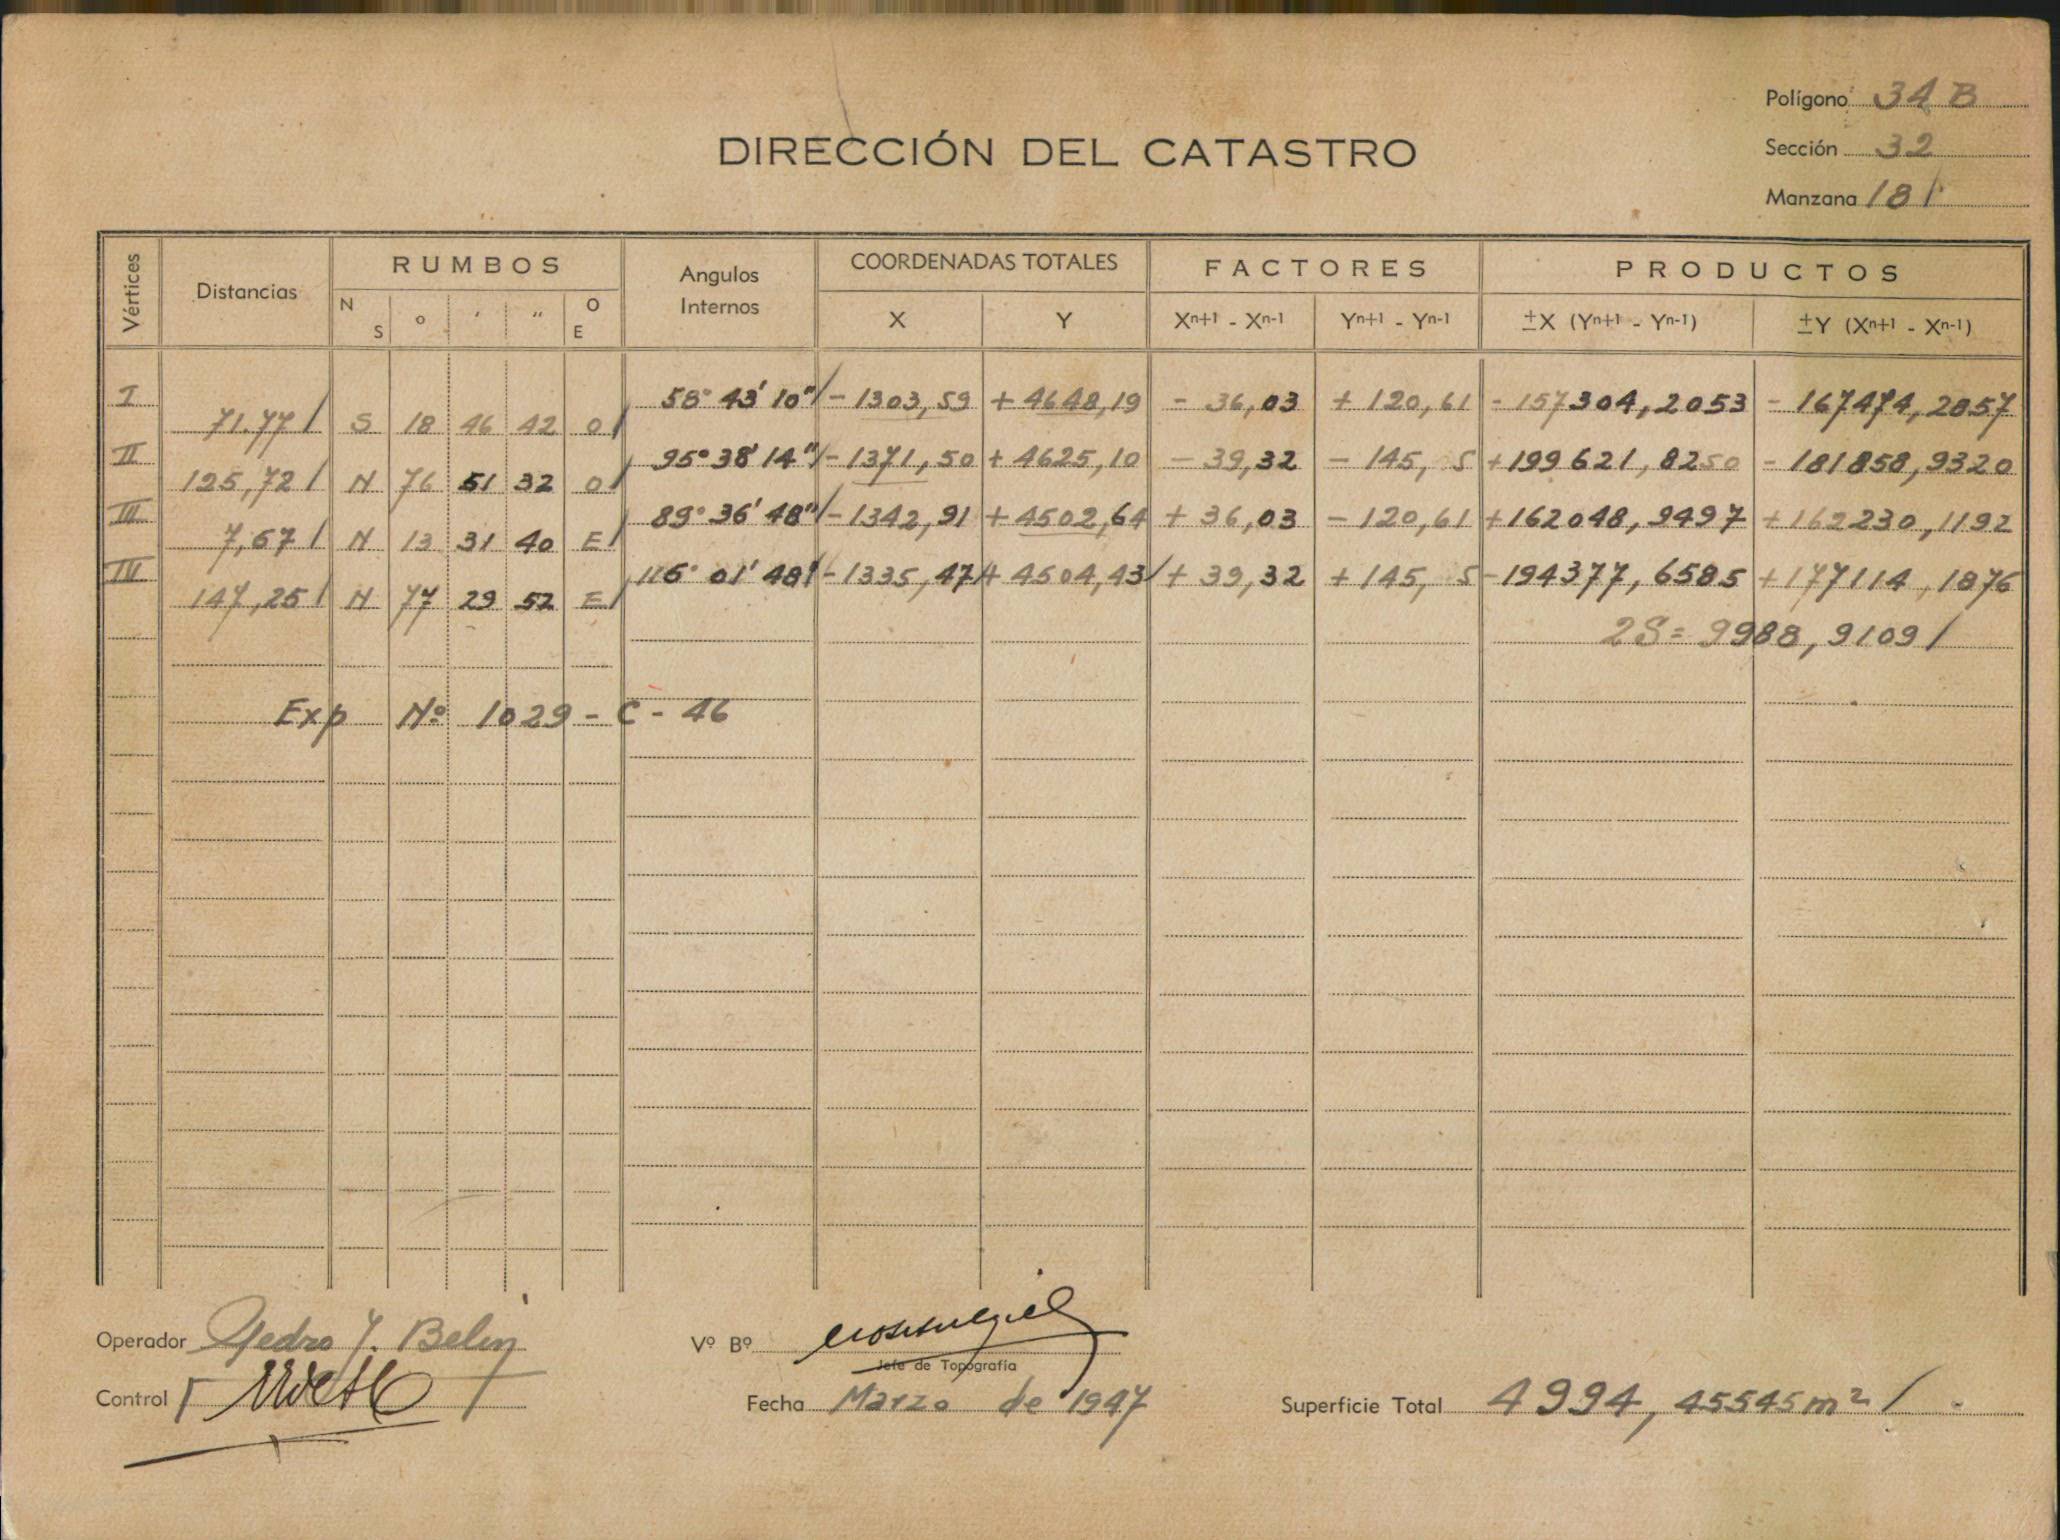 Polígono 34 B
Sección 32
Manzana 181
DIRECCIÓN DEL CATASTRO
Vértices Distancias RUMBOS Angulos Internos COORDENADAS TOTALES FACTORES PRODUCTOS
N S ° ' " O E X Y Xn+1 - Xn-1 Yn+1 - Yn-1 ±X (Yn+1 - Yn-1) ±Y (Xn+1 - Xn-1)
I 58° 43' 10" - 1303,59 + 4648,19 - 36,03 + 120,61 - 157304,2053 - 167474,2857
71.77 S 18 46 42 O
II 95° 38' 14" - 1371,50 + 4625,10 - 39,32 - 145, 5 + 199621,8250 - 181858,9320
125,72 N 76 51 32 O
III 89° 36' 48" - 1342,91 + 4502,64 + 36,03 - 120,61 + 162048,9497 + 162230,1192
7,67 N 13 31 40 E
IV 116° 01' 48" - 1335,47 + 4504,43 + 39,32 + 145, 5 - 194377,6585 + 177114,1876
147,25 N 77 29 52 E
2S = 9988,9109
Exp Nº 1029 - C - 46
Operador Pedro J. Belin
Vº Bº
Jefe de Topografía
Control
Fecha Marzo de 1947
Superficie Total 4994,45545 m²